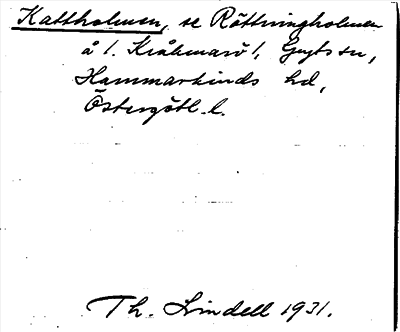 Kattholmen, se Råttningholmen
å l. Kråkmarö l, Gryts sn,
Hammarkinds hd,
Östergötl. l.
Th. Lindell 1931.